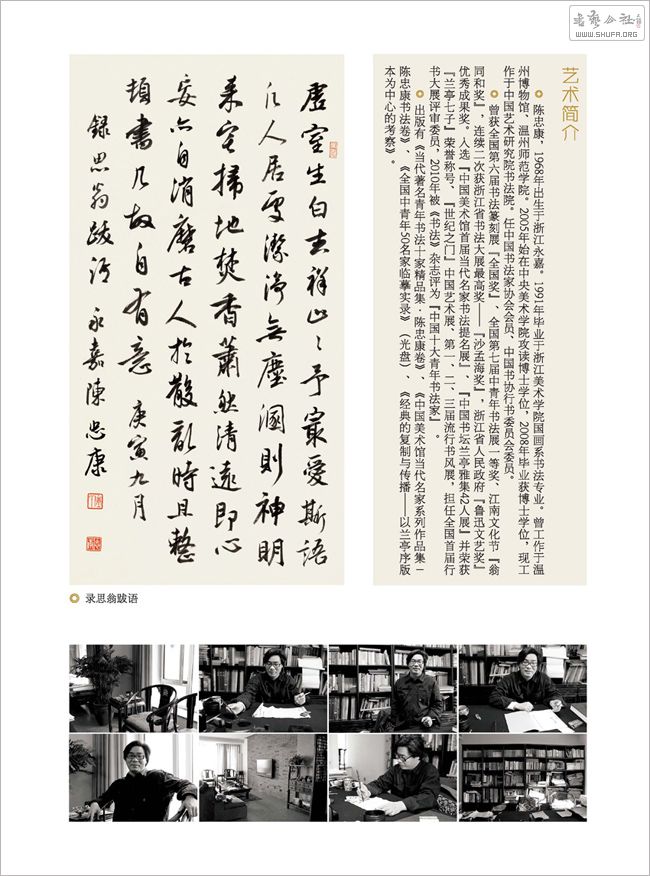 書藝公社
WWW.SHUFA.ORG
艺术简介
陈忠康，1968年出生于浙江永嘉。1991年毕业于浙江美术学院国画系书法专业。曾工作于温
州博物馆、温州师范学院。2005年始在中央美术学院攻读博士学位，2008年毕业获博士学位，现工
作于中国艺术研究院书法院。任中国书法家协会会员、中国书协行书委员会委员。
曾获全国第六届书法篆刻展『全国奖』、全国第七届中青年书法展一等奖、江南文化节『翁
同和奖』，连续二次获浙江省书法大展最高奖——『沙孟海奖』，浙江省人民政府『鲁迅文艺奖』
优秀成果奖。入选『中国美术馆首届当代名家书法提名展』、『中国书坛兰亭雅集42人展』并荣获
『兰亭七子』荣誉称号、『世纪之门』中国艺术展、第一、二、三届流行书风展，担任全国首届行
书大展评审委员，2010年被《书法》杂志评为『中国十大青年书法家』。
出版有《当代著名青年书法十家精品集·陈忠康卷》、《中国美术馆当代名家系列作品集－
陈忠康书法卷》、《全国中青年50名家临摹实录》（光盘）、《经典的复制与传播——以兰亭序版
本为中心的考察》。
虚室生白吉祥止々予最愛斯語
凡人居處潔淨無塵溷則神明
来宅掃地焚香蕭然清遠即心
妄亦自消磨古人於散亂時且整
頓書几故自有意 庚寅九月
録思翁跋语 永嘉陳忠康
录思翁跋语